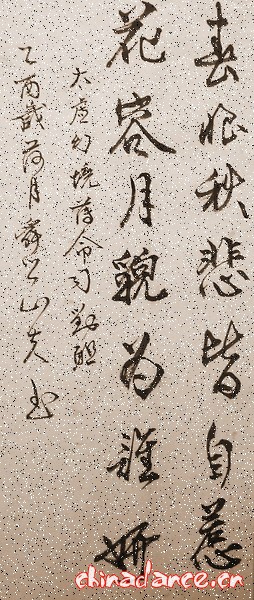 春恨秋悲皆自惹
花容月貌为誰妍
太虚幻境薄命司對聯
乙酉歲荷月山夫书
chinadance.cn